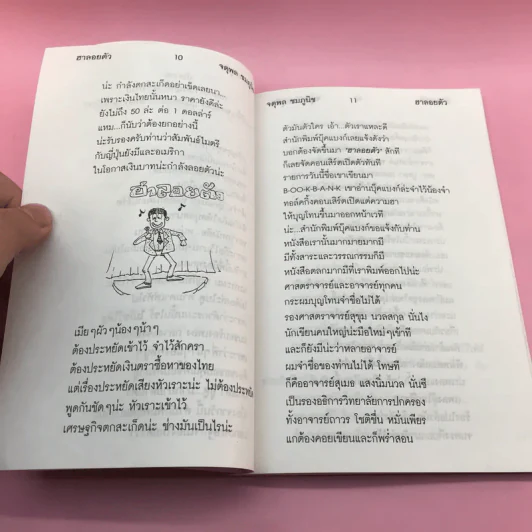 ฮาลอยตัว 10 จตุพล ชมภูนิช
น่ะ กำลังตกสะเก็ดอย่าเช็ดเลยนา...
เพราะเงินไทยนั้นหนา ราคายังดีล่ะ
ยังไม่ถึง 50 ล่ะ ต่อ 1 ดอลล่าร์
แหม...ก็นับว่าต้องยกอย่างนี้
น่ะรองครับท่านว่าสัมพันธ์ไมตรี
กับญี่ปุ่นยังมีและอเมริกา
ในโอกาสเงินบาทน่ะกำลังลอยตัวน่ะ
ฮาลอยตัว
เมียๆผัวๆน้องๆน้าๆ
ต้องประหยัดเข้าไว้ จำไว้สักครา
ต้องประหยัดเงินตราซื้อหาของไทย
แต่เรื่องประหยัดเสียงหัวเราะน่ะ ไม่ต้องประหยัด
พูดกันชัดๆน่ะ หัวเราะเข้าไว้
เศรษฐกิจตกสะเก็ดน่ะ ช่างมันเป็นไรน่ะ
จตุพล ชมภูนิช 11 ฮาลอยตัว
ตัวมันตัวใคร เอ้า...ตัวเราแหละดี
สำนักพิมพ์บุ๊คแบงก์เลยแจ้งดังว่า
บอกต้องจัดขึ้นมา "ฮาลอยตัว" สักที
ก็เลยจัดคอนเสิร์ตเปิดตัวทันที
รายการวันนี้ชื่อเขาเขียนมา
B-O-O-K-B-A-N-K เขาอ่านบุ๊คแบงก์ล่ะจำไว้น้องจำ
ทอล์คกิ้งคอนเสิร์ตเปิดแต่ความฮา
ให้บุญโทนขึ้นมาออกหน้าเวที
น่ะ...สำนักพิมพ์บุ๊คแบงก์ขอแจ้งกับท่าน
หนังสือเรานั้นมากมายมากมี
มีทั้งสาระและวรรณกรรมก็มี
หนังสือตลกมากมีที่เราพิมพ์ออกไปน่ะ
ศาสตราจารย์และอาจารย์ทุกคน
กระผมบุญโทนจำชื่อไม่ได้
รองศาสตราจารย์สุขุม นวลสกุล นั่นไง
นักเขียนคนใหญ่น่ะมือใหม่ๆเข้าที
และก็ยังมีน่ะว่าหลายอาจารย์
ผมจำชื่อของท่านไม่ได้ โทษที
ก็คืออาจารย์สุเมธ แสงนิ่มนวล นั่นซี
เป็นรองอธิการวิทยาลัยการปกครอง
ทั้งอาจารย์ถาวร โชติชื่น หมั่นเพียร
แกต้องคอยเขียนและก็พร่ำสอน